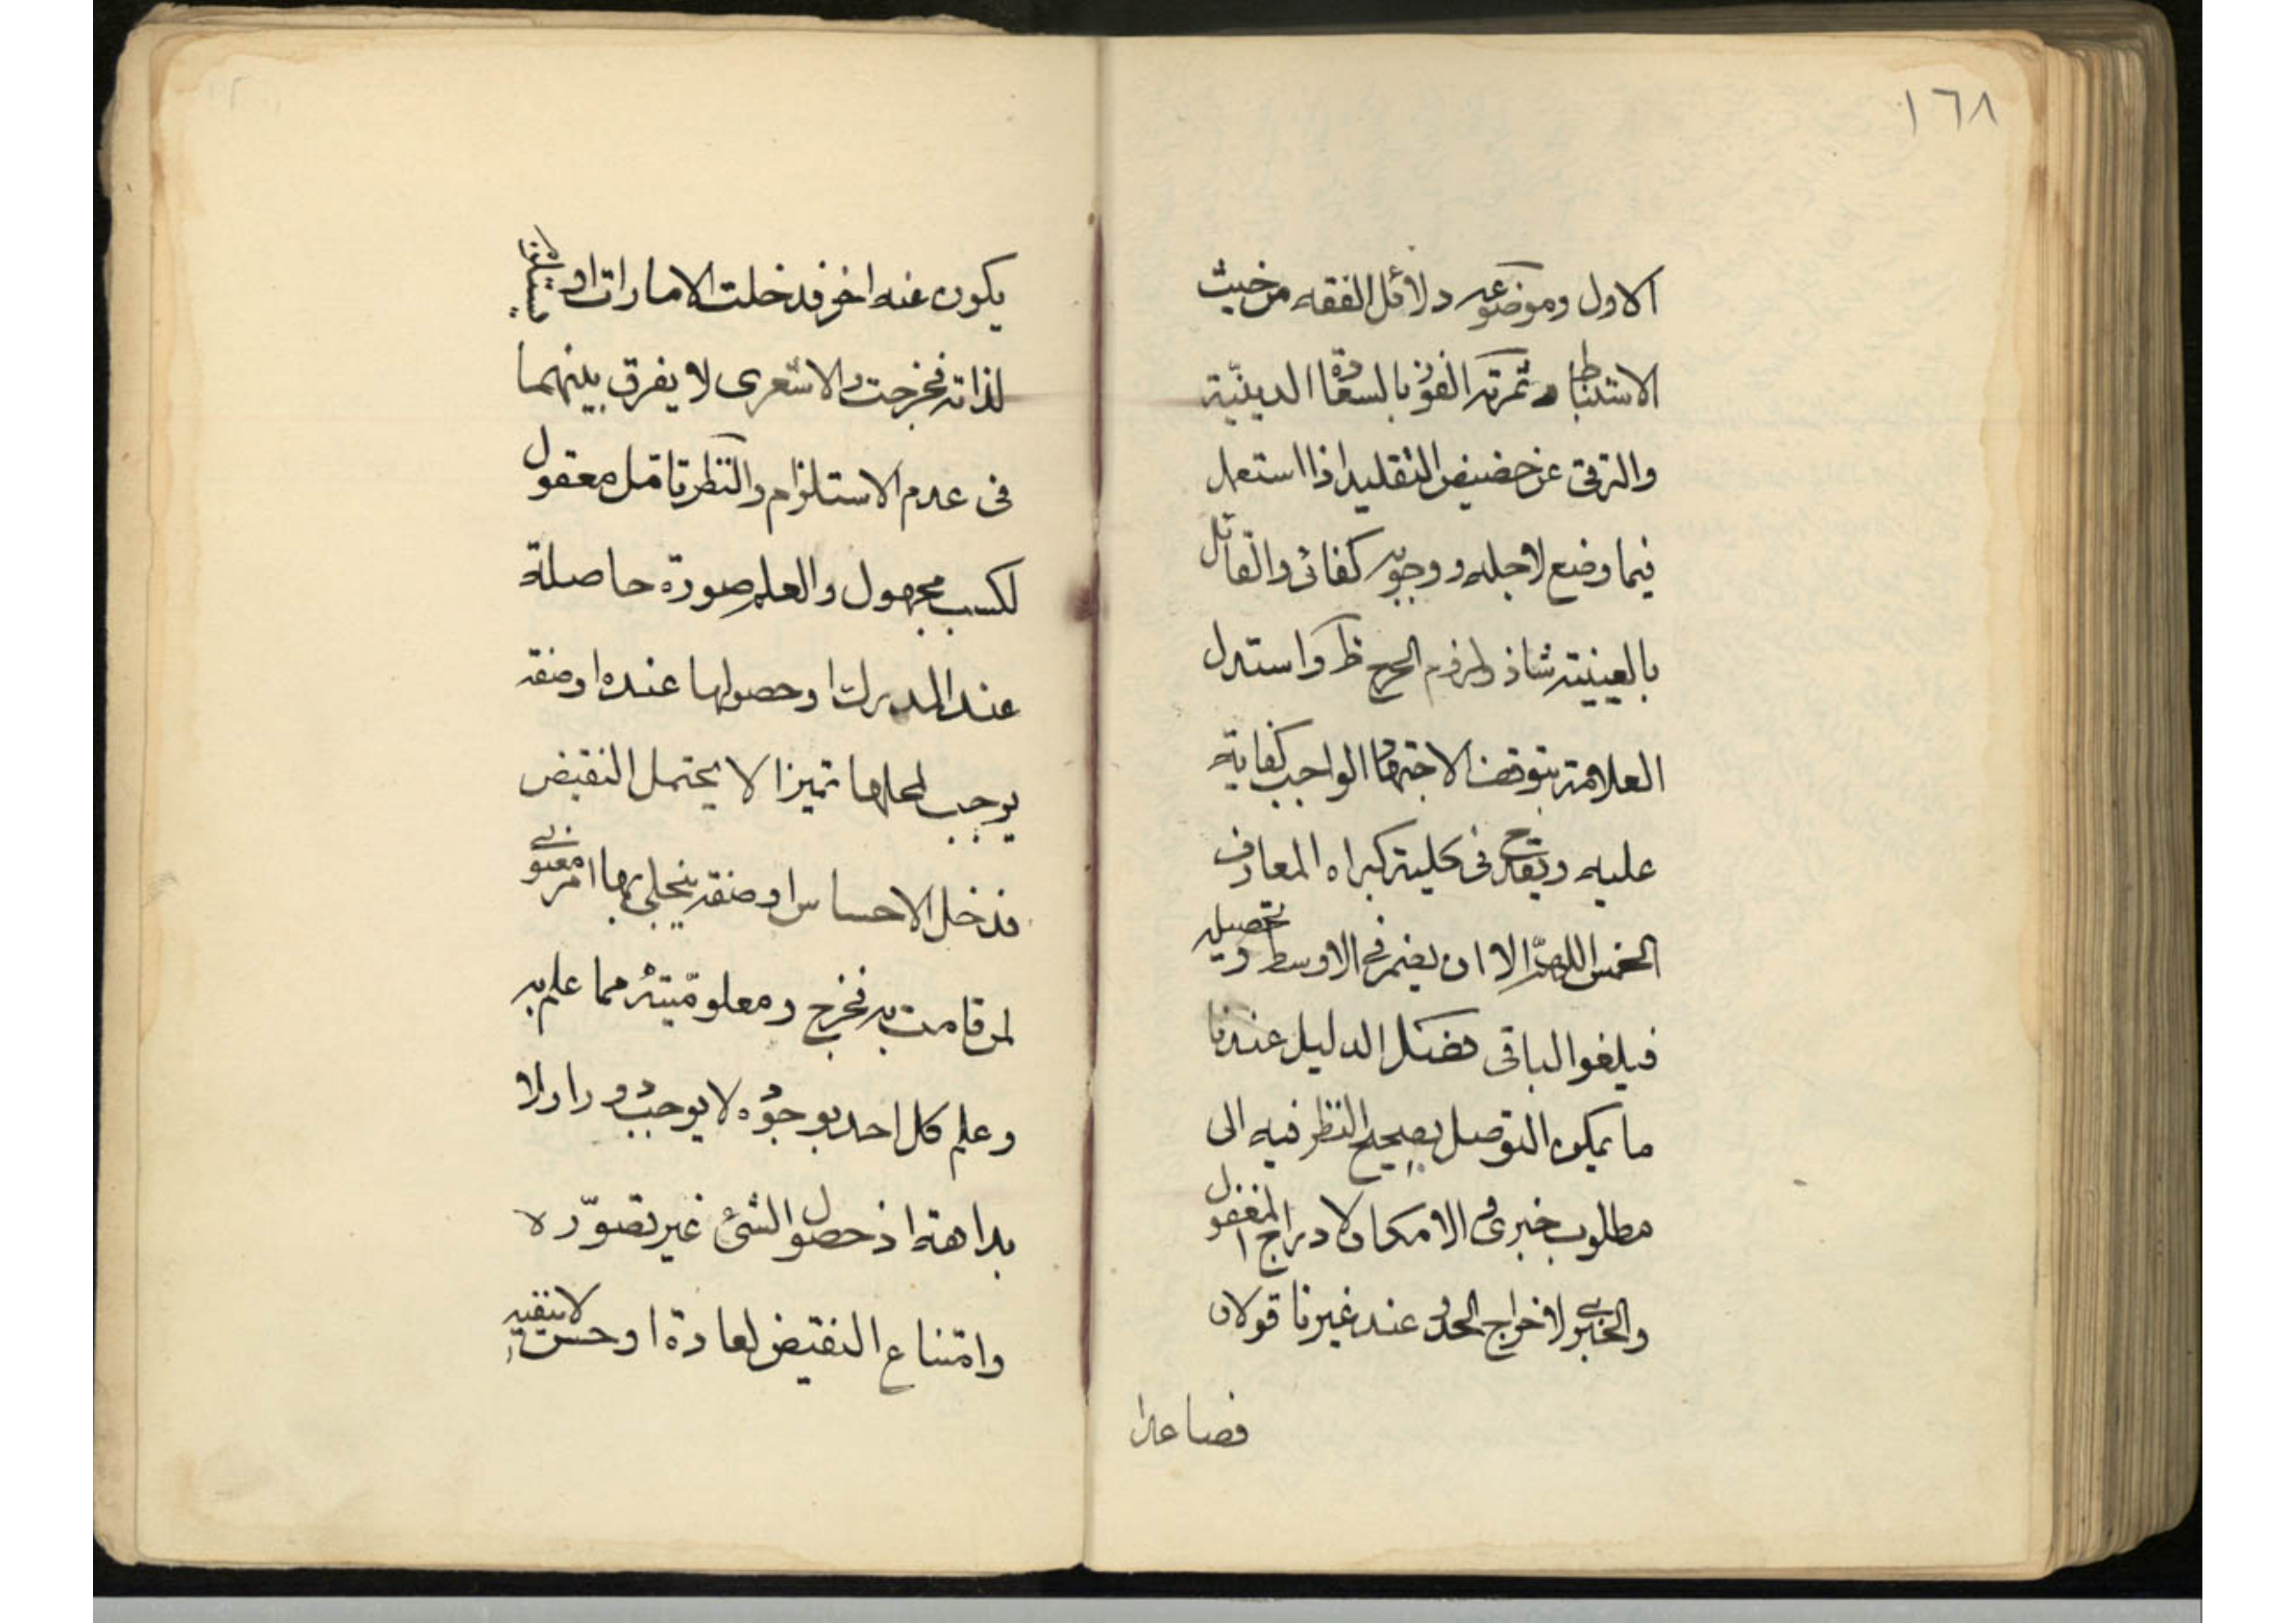 ١٦٨
الاول وموضوعه دلائل الفقه من حيث
الاستنباط وثمرته الفوز بالسعادة الدينية
والترقى عن حضيض التقليد اذا استعمل
فيما وضع لاجله ووجوبه كفائى والقائل
بالعينية شاذ ولزوم الحرج ظ واستدل
العلامة بتوقف الاجتهاد الواجب كفاية
عليه ويقدح فى كلية كبراه المعارف
الخمس اللهم الا ان يضم فى الاوسط وتحصيله
فيلغو الباقى فصل الدليل عندنا
ما يمكن التوصل بصحيح النظر فيه الى
مطلوب خبرى فالامكان لادراج المغفول
والخبرى لاخراج الحد وعند غيرنا قولان
فصاعدا
يكون عنه اخر فدخلت الامارات او يستلزم
لذاته فخرجت والاشعرى لا يفرق بينهما
فى عدم الاستلزام والنظر تامل معقول
لكسب مجهول والعلم صورة حاصلة
عند المدرك او حصولها عنده او صفة
يوجب لمحلها تميزا لا يحتمل النقيض
فدخل الاحساس او صفة ينجلى بها امر معنوى
لمن قامت به فخرج ومعلوميته مما علم به
وعلم كل احد بوجوده لا يوجب دورا ولا
بداهة اذ حصول الشئ غير تصوره
وامتناع النقيض لعادة او حس لا ينفيه